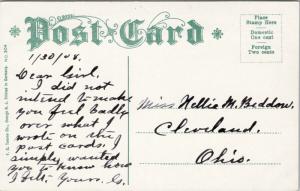 Post Card
Place
Stamp Here
Domestic
One cent
Foreign
Two cents
1/30/08.
Dear Girl.
I did not
intend to make
you feel badly
over what I
wrote on the
post cards. I
simply wanted
you to know how
I felt. Yours.
Miss Nellie M. Beddow.
Cleveland.
Ohio.